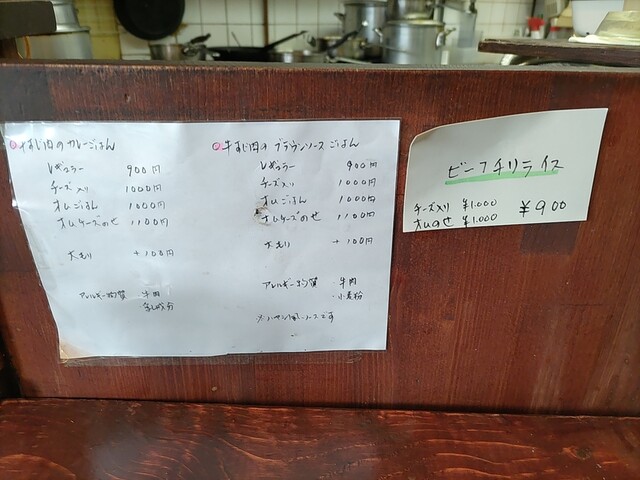 牛すじ肉のカレーごはん
レギュラー 900円
チーズ入り 1000円
オムごはん 1000円
オムチーズのせ 1100円
大もり +100円
アレルギー物質 牛肉
乳成分
牛すじ肉のブラウンソースごはん
レギュラー 900円
チーズ入り 1000円
オムごはん 1000円
オムチーズのせ 1100円
大もり +100円
アレルギー物質 牛肉
・小麦粉
ソースです
ビーフチリライス
¥900
チーズ入り ¥1.000
オムのせ ¥1.000